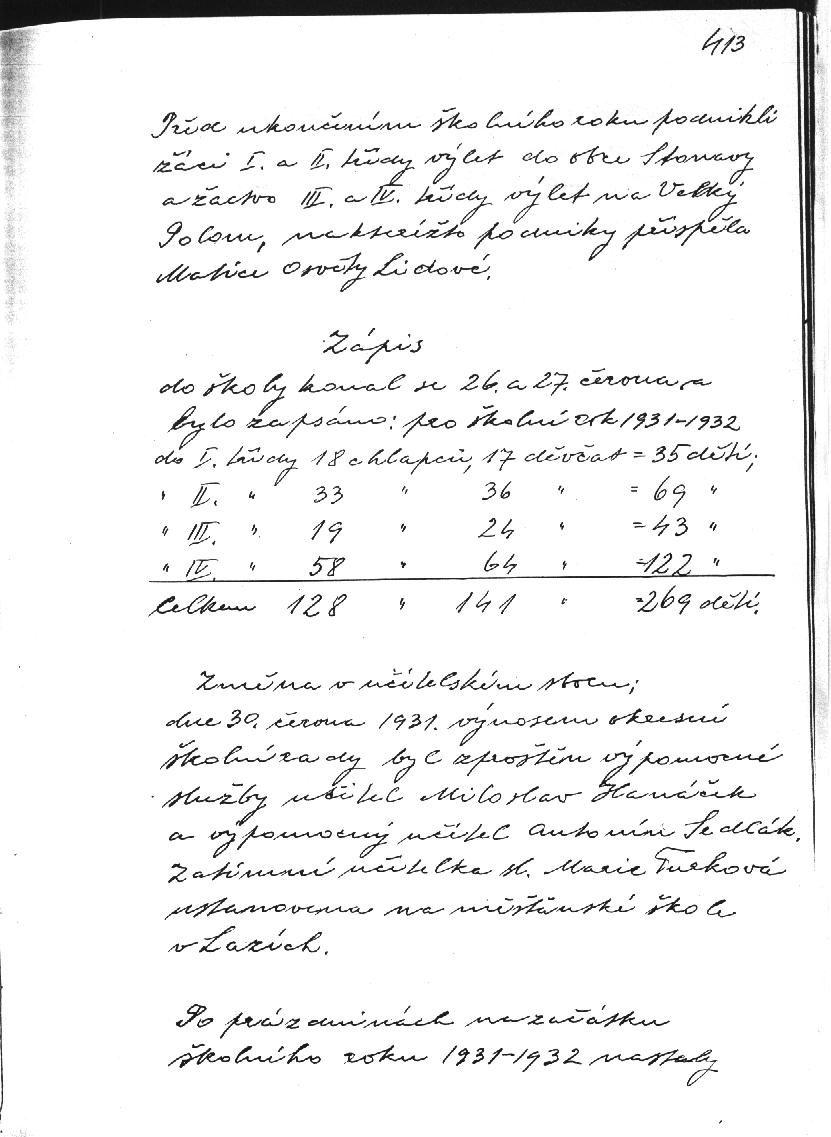 413
Před ukončením školního roku podnikli
žáci I. a II. třídy výlet do obce Stonavy
a žactvo III. a IV. třídy výlet na Velký
Polom, nakterížto podniky přispěla
Matice Osvěty Lidové.
Zápis
do školy konal se 26. a 27. června, a
bylo zapsáno: pro školní rok 1931-1932
do I. třídy 18 chlapců, 17 děvčat = 35 dětí;
" II. " 33 " 36 " = 69 "
" III. " 19 " 24 " = 43 "
" IV. " 58 " 64 " =122 "
Celkem 128 " 141 " =269 dětí.
Změna v učitelském sboru;
dne 30. června 1931. výnosem okresní
školní rady byl zproštěn výpomocné
služby učitel Miloslav Hanáček
a výpomocný učitel Antonín Sedlák.
Zatímní učitelka sl. Marie Turková
ustanovena na měšťánské škole
v Lazích.
Po prázdninách na začátku
školního roku 1931-1932 nastaly